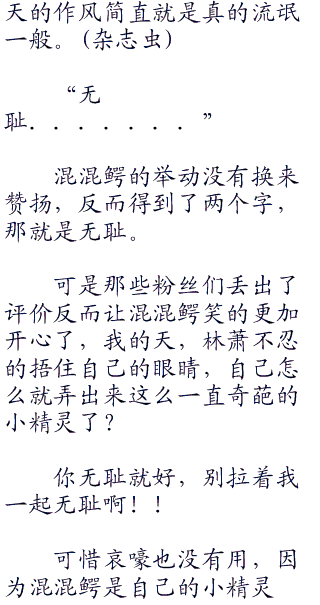 天的作风简直就是真的流氓
一般。(杂志虫)
“无
耻．．．．．．．”
混混鳄的举动没有换来
赞扬，反而得到了两个字，
那就是无耻。
可是那些粉丝们丢出了
评价反而让混混鳄笑的更加
开心了，我的天，林萧不忍
的捂住自己的眼睛，自己怎
么就弄出来这么一直奇葩的
小精灵了？
你无耻就好，别拉着我
一起无耻啊！！
可惜哀嚎也没有用，因
为混混鳄是自己的小精灵